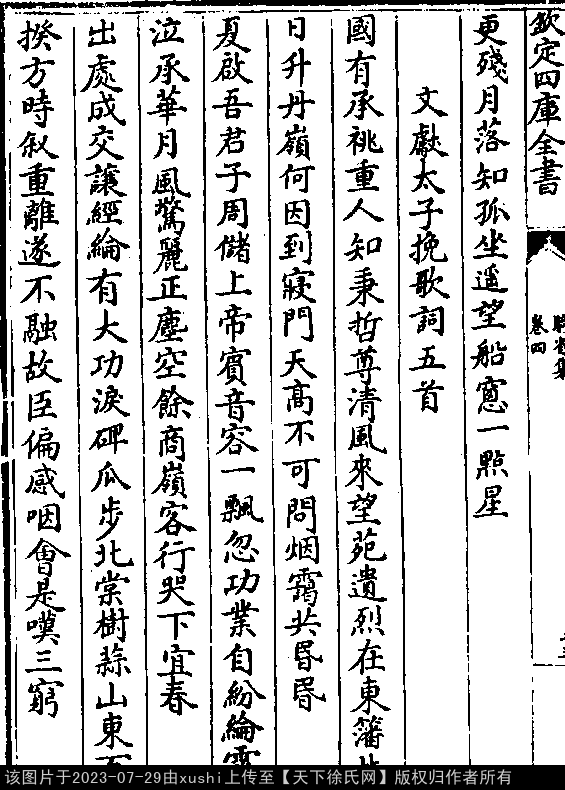 欽定四庫全書
卷四
更殘月落知孤坐遥望船窻一㸃星
文獻太子挽歌詞五首
國有承祧重人知秉哲尊清風來望苑遺烈在東藩此
日升丹嶺何因到寢門天髙不可問烟靄共昏昏
夏啟吾君子周儲上帝賓音容一飄忽功業自紛綸露
泣承華月風驚麗正塵空餘商嶺客行哭下宜春
出處成交讓經綸有大功淚碑瓜步北棠樹蒜山東百
揆方時叙重離遂不融故臣偏感咽曾是嘆三窮
该图片于2023-07-29由xushi上传至【天下徐氏网】版权归作者所有